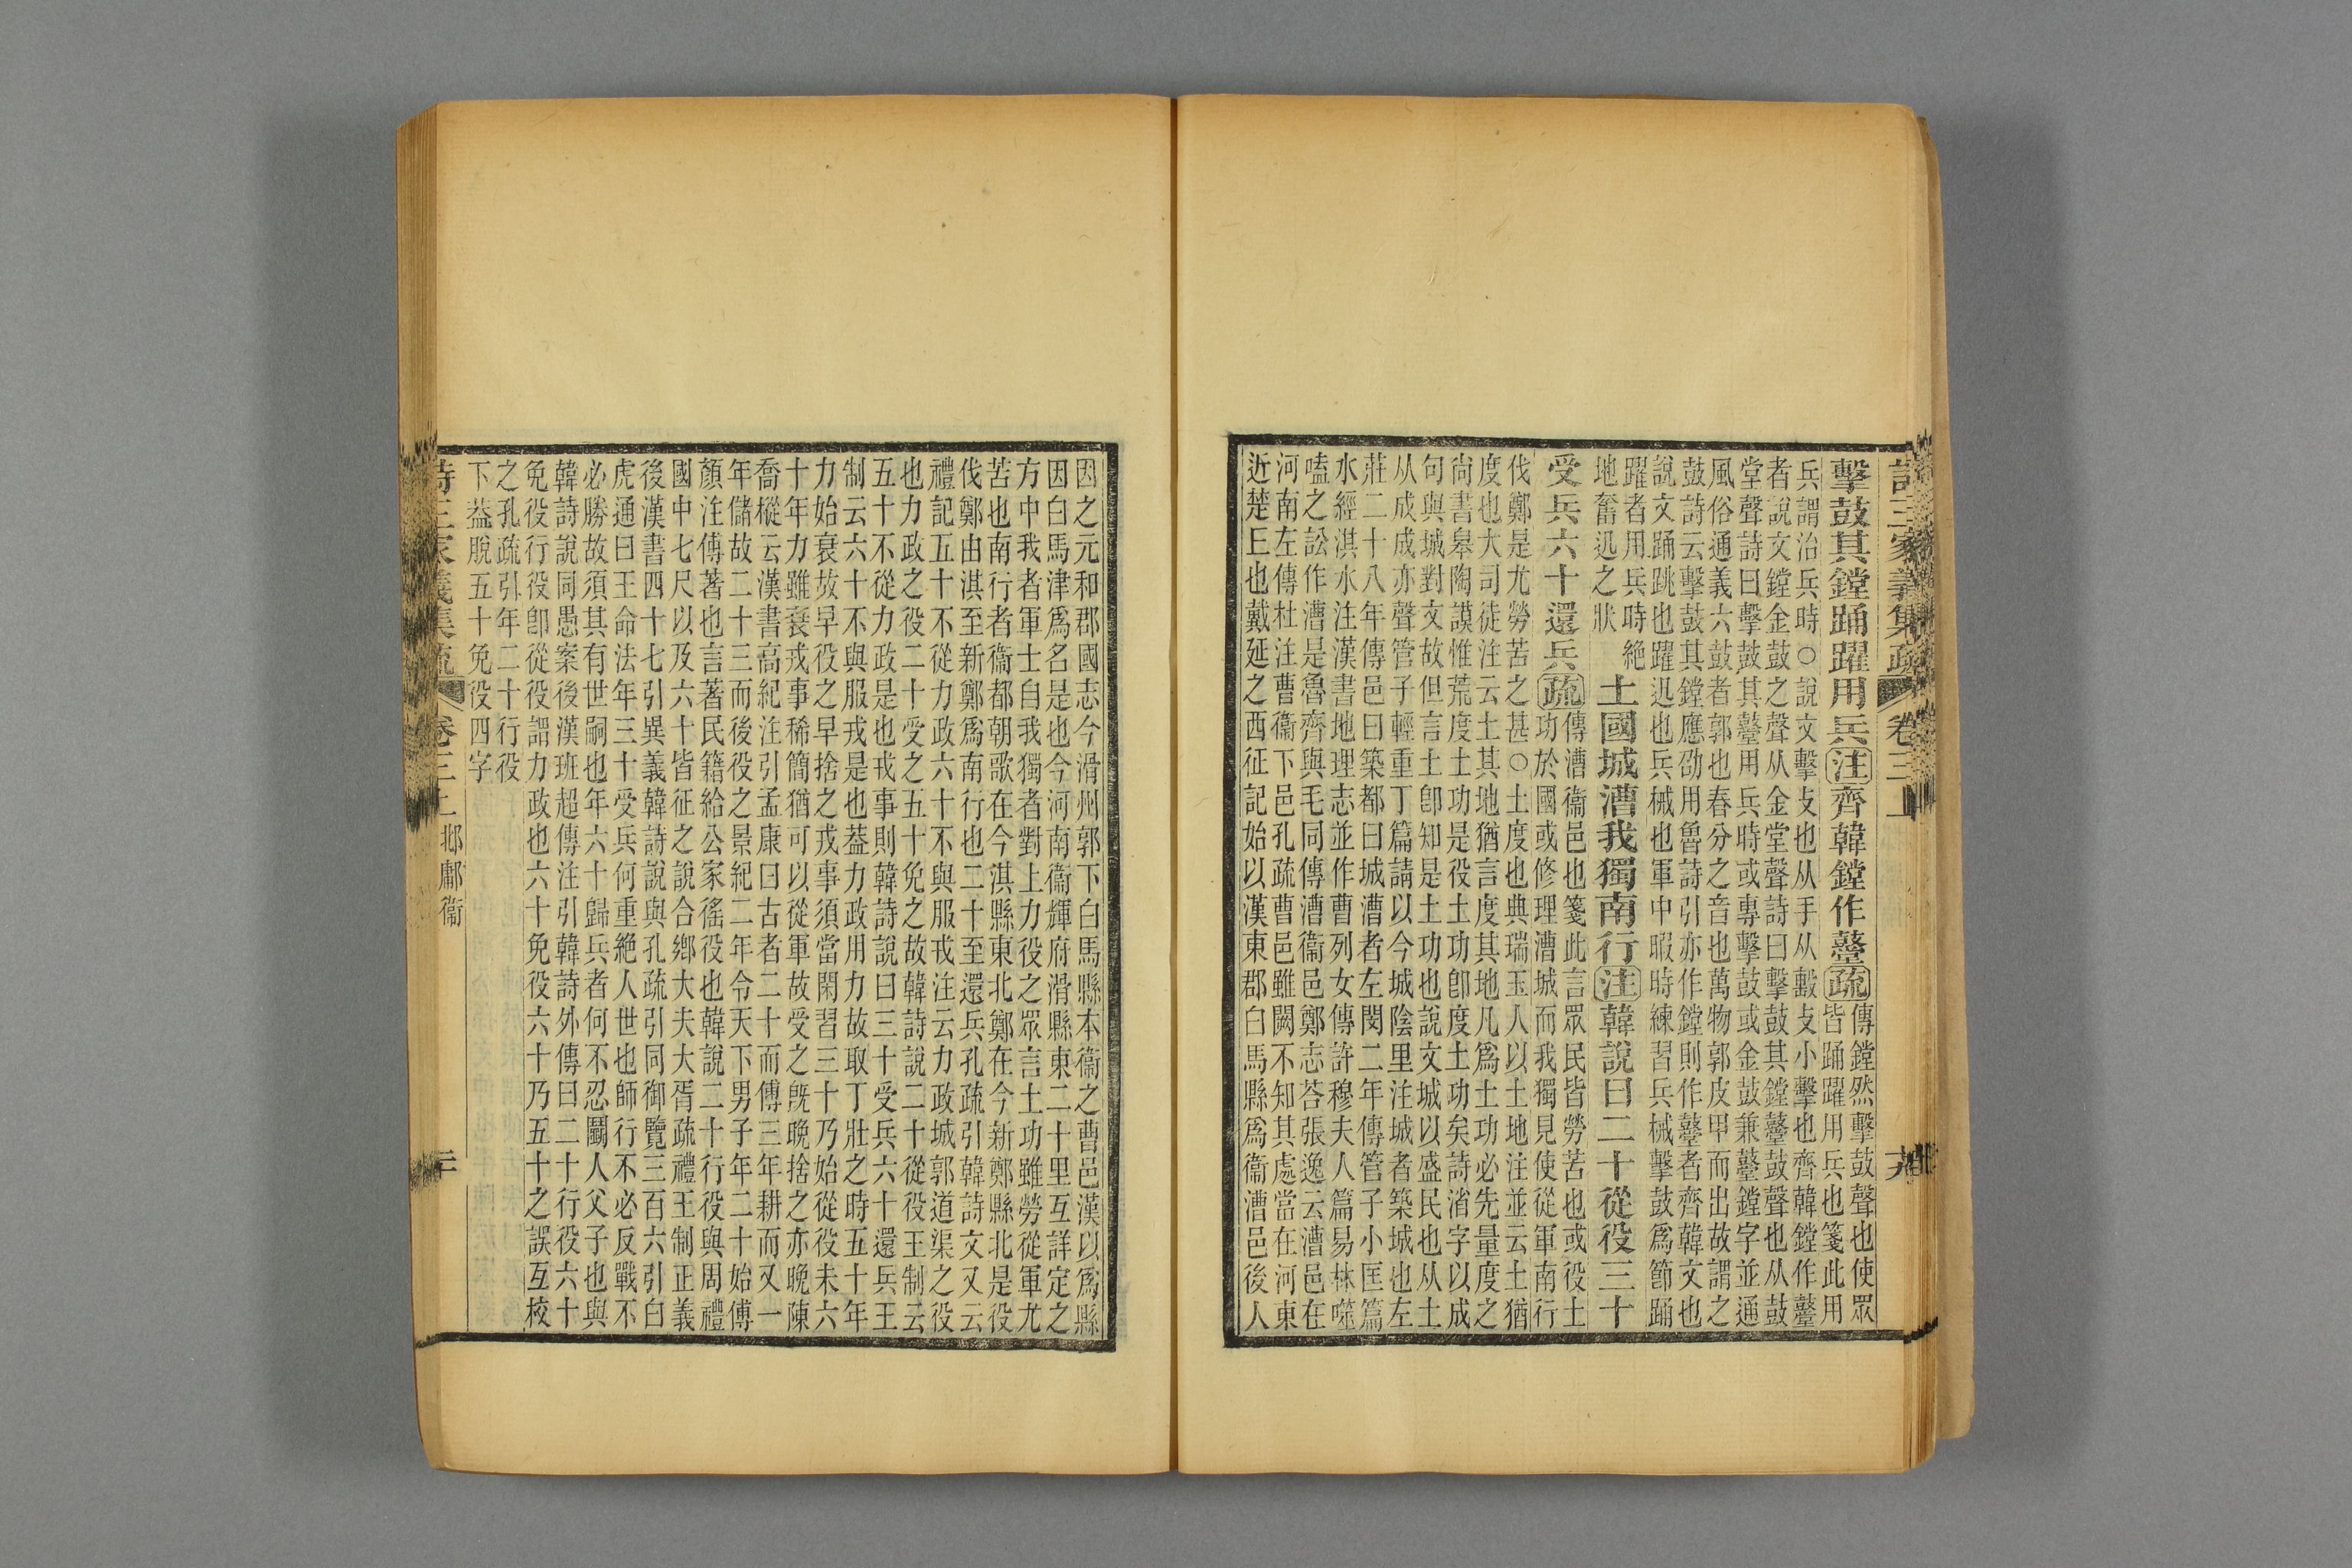 詩三家義集疏 卷三上 十九
擊鼓其鏜踊躍用兵注齊韓鏜作鼞疏傳鏜然擊鼓聲也使眾
皆踊躍用兵也箋此用
兵謂治兵時○說文擊攴也从手从毄攴小擊也齊韓鏜作鼞
者說文鏜金鼓之聲从金堂聲詩曰擊鼓其鏜鼞鼓聲也从鼓
堂聲詩曰擊鼓其鼞用兵時或專擊鼓或金鼓兼鼞鏜字並通
風俗通義六鼓者郭也春分之音也萬物郭皮甲而出故謂之
鼓詩云擊鼓其鏜應劭用魯詩引亦作鏜則作鼞者齊韓文也
說文踊跳也躍迅也兵械也軍中暇時練習兵械擊鼓爲節踊
躍者用兵時絕
地奮迅之狀
土國城漕我獨南行注韓說曰二十從役三十
受兵六十還兵疏傳漕衞邑也箋此言眾民皆勞苦也或役土
功於國或修理漕城而我獨見使從軍南行
伐鄭是尤勞苦之甚○土度也典瑞玉人以土地注並云土猶
度也大司徒注云土其地猶言度其地凡爲土功必先量度之
尚書皋陶謨惟荒度土功是役土功卽度土功矣詩渻字以成
句與城對文故但言土卽知是土功也說文城以盛民也从土
从成成亦聲管子輕重丁篇請以今城陰里注城者築城也左
莊二十八年傳邑曰築都曰城漕者左閔二年傳管子小匡篇
水經淇水注漢書地理志並作曹列女傳許穆夫人篇易林噬
嗑之訟作漕是魯齊與毛同傳漕衞邑鄭志荅張逸云漕邑在
河南左傳杜注曹衞下邑孔疏曹邑雖闕不知其處當在河東
近楚丘也戴延之西征記始以漢東郡白馬縣爲衞漕邑後人
因之元和郡國志今滑州郭下白馬縣本衞之曹邑漢以爲縣
因白馬津爲名是也今河南衞輝府滑縣東二十里互詳定之
方中我者軍士自我獨者對上力役之眾言土功雖勞從軍尤
苦也南行者衞都朝歌在今淇縣東北鄭在今新鄭縣北是役
伐鄭由淇至新鄭爲南行也二十至還兵孔疏引韓詩文又云
禮記五十不從力政六十不與服戎注云力政城郭道渠之役
也力政之役二十受之五十免之故韓詩說二十從役王制云
五十不從力政是也戎事則韓詩說曰三十受兵六十還兵王
制云六十不與服戎是也葢力政用力故取丁壯之時五十年
力始衰故早役之早捨之戎事須當閑習三十乃始從役未六
十年力雖衰戎事稀簡猶可以從軍故受之旣晚捨之亦晚陳
喬樅云漢書高紀注引孟康曰古者二十而傅三年耕而又一
年儲故二十三而後役之景紀二年令天下男子年二十始傅
顏注傅著也言著民籍給公家徭役也韓說二十行役與周禮
國中七尺以及六十皆征之說合鄉大夫大胥疏禮王制正義
後漢書四十七引異義韓詩說與孔疏引同御覽三百六引白
虎通曰王命法年三十受兵何重絕人世也師行不必反戰不
必勝故須其有世嗣也年六十歸兵者何不忍鬭人父子也與
韓詩說同愚案後漢班超傳注引韓詩外傳曰二十行役六十
免役行役卽從役謂力政也六十免役六十乃五十之誤互校
之孔疏引年二十行役
下葢脫五十免役四字
詩三家義集疏 卷三上 邶鄘衞 二十